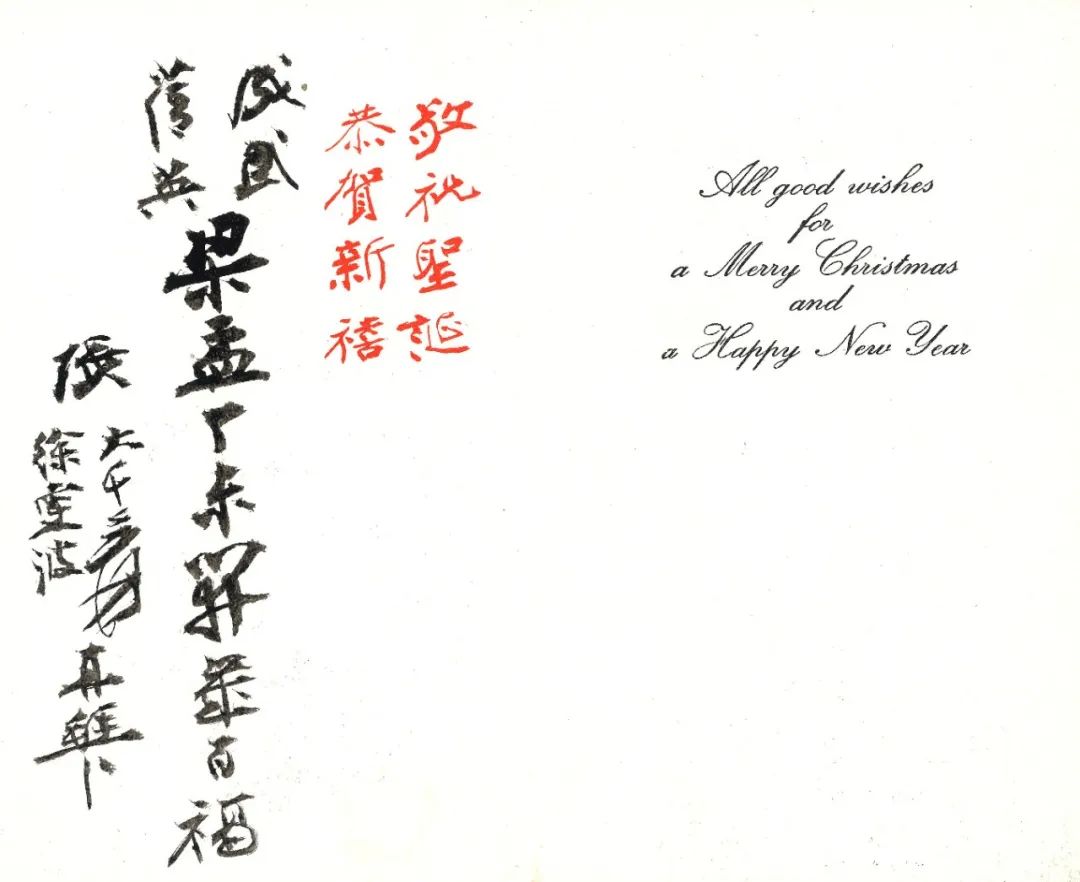 敬祝聖誕
恭賀新禧
蒨英
梁孟丁未開歲百福
張
大千爰
徐雯波
再拜
All good wishes
for
a Merry Christmas
and
a Happy New Year